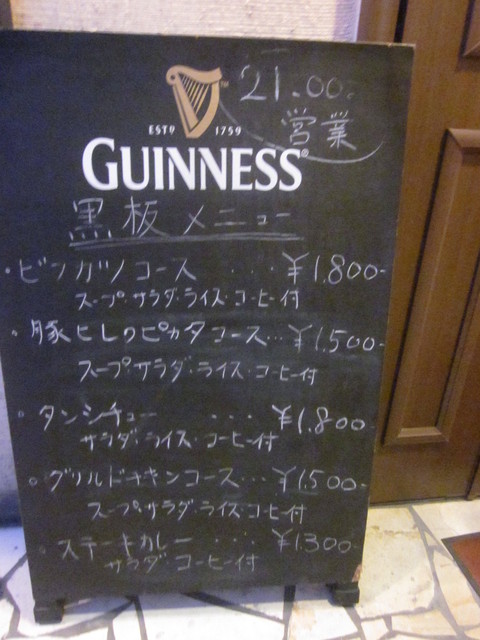 21.00.
営業
ESTD 1759
GUINNESS®
黒板メニュー
・ビフカツコース ････ ¥1.800-
スープ･サラダ･ライス･コーヒー付
・豚ヒレのピカタコース… ¥1.500-
スープ･サラダ･ライス･コーヒー付
○ タンシチュー ････ ¥1.800-
サラダ･ライス･コーヒー付
○ グリルドチキンコース… ¥1.500-
スープ･サラダ･ライス･コーヒー付
○ ステーキカレー ････ ¥1.300-
サラダ コーヒー付